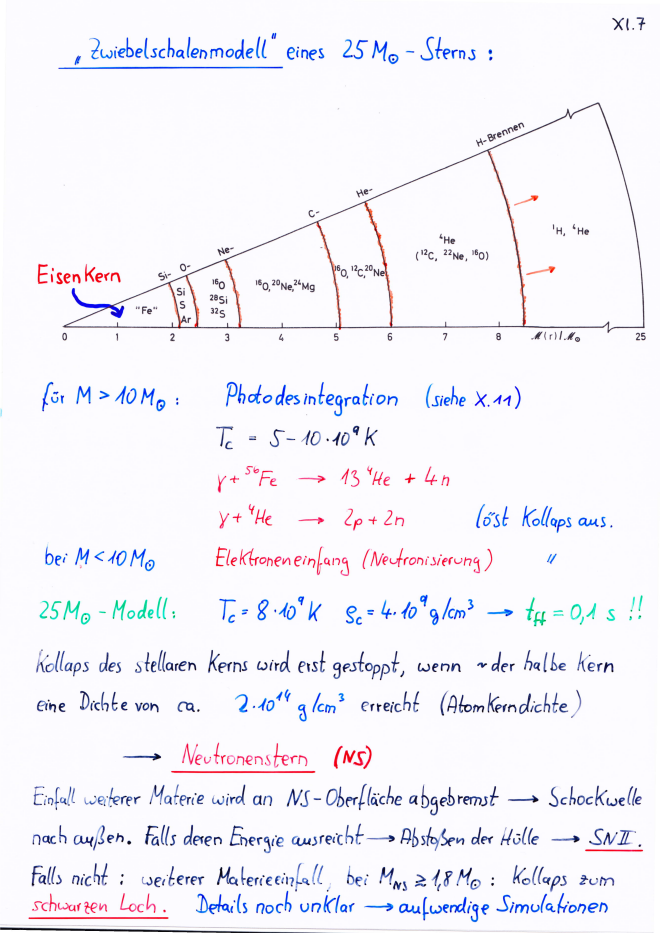 XI.7
„Zwiebelschalenmodell" eines 25 M☉ - Sterns :
H-Brennen
He-
C-
Ne-
O-
Si-
Eisenkern
"Fe"
Si
S
Ar
¹⁶O
²⁸Si
³²S
¹⁶O, ²⁰Ne, ²⁴Mg
¹⁶O, ¹²C, ²⁰Ne
⁴He
(¹²C, ²²Ne, ¹⁶O)
¹H, ⁴He
0 1 2 3 4 5 6 7 8 M(r)/M☉ 25
für M > 10 M☉ : Photodesintegration (siehe X.11)
Tc = 5 - 10 · 10⁹ K
γ + ⁵⁶Fe → 13 ⁴He + 4n
γ + ⁴He → 2p + 2n löst Kollaps aus.
bei M < 10 M☉ Elektroneneinfang (Neutronisierung) "
25 M☉ - Modell : Tc = 8 · 10⁹ K ρc = 4 · 10⁹ g/cm³ → tff = 0,1 s !!
Kollaps des stellaren Kerns wird erst gestoppt, wenn ~ der halbe Kern
eine Dichte von ca. 2 · 10¹⁴ g/cm³ erreicht (Atomkerndichte)
→ Neutronenstern (NS)
Einfall weiterer Materie wird an NS-Oberfläche abgebremst → Schockwelle
nach außen. Falls deren Energie ausreicht → Abstoßen der Hülle → SN II.
Falls nicht : weiterer Materieeinfall, bei M_NS ≳ 1,8 M☉ : Kollaps zum
schwarzen Loch. Details noch unklar → aufwendige Simulationen